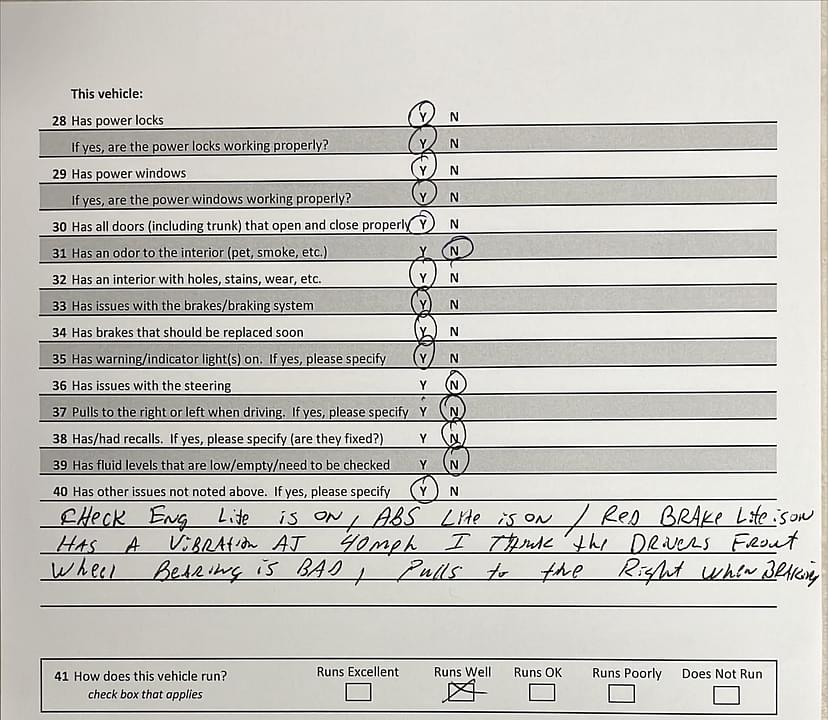 This vehicle:
28 Has power locks Y N
If yes, are the power locks working properly? Y N
29 Has power windows Y N
If yes, are the power windows working properly? Y N
30 Has all doors (including trunk) that open and close properly Y N
31 Has an odor to the interior (pet, smoke, etc.) Y N
32 Has an interior with holes, stains, wear, etc. Y N
33 Has issues with the brakes/braking system Y N
34 Has brakes that should be replaced soon Y N
35 Has warning/indicator light(s) on. If yes, please specify Y N
36 Has issues with the steering Y N
37 Pulls to the right or left when driving. If yes, please specify Y N
38 Has/had recalls. If yes, please specify (are they fixed?) Y N
39 Has fluid levels that are low/empty/need to be checked Y N
40 Has other issues not noted above. If yes, please specify Y N
CHeck Eng Lite is ON, ABS Lite is ON / Red BRAKe Lite is ON
HAS A ViBRAtion AT 40mph I Think the DRiveRS FRont
Wheel BeaRing is BAD, Pulls to the Right when BRAKing
41 How does this vehicle run? Runs Excellent Runs Well Runs OK Runs Poorly Does Not Run
check box that applies